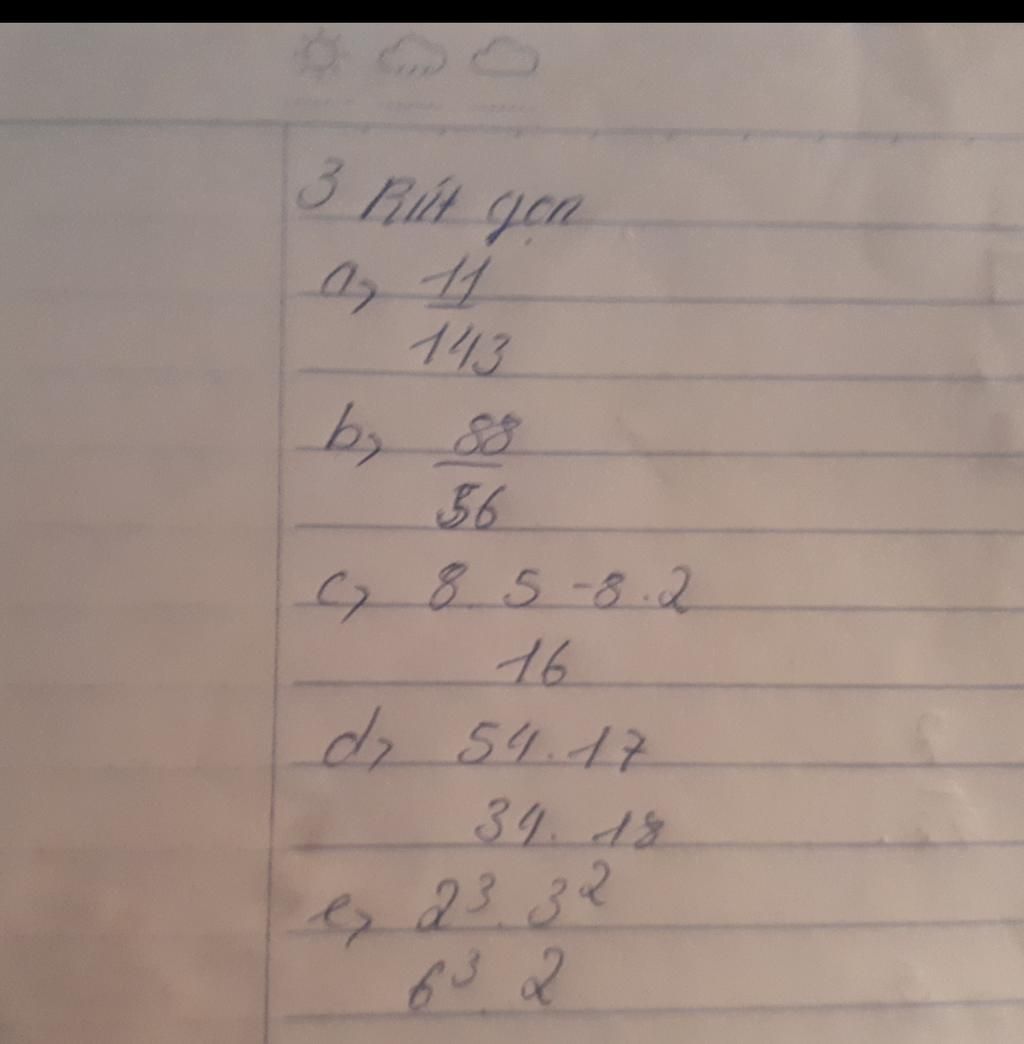 3 Rút gọn
a, 11
143
b, 88
56
c, 8. 5 - 8 . 2
16
d, 54 . 17
34. 18
e, 2³. 3²
6³. 2